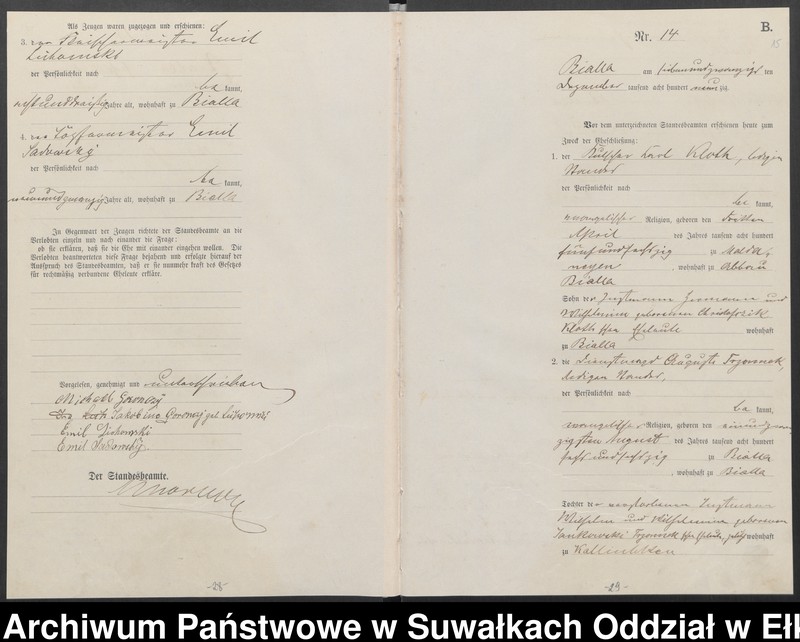 Als Zeugen waren zugezogen und erschienen:
3. Emil
der Persönlichkeit nach
be kannt,
achtunddreißig Jahre alt, wohnhaft zu Bialla
4. Emil
Sadowsky
der Persönlichkeit nach
be kannt,
neunundzwanzig Jahre alt, wohnhaft zu Bialla
In Gegenwart der Zeugen richtete der Standesbeamte an die
Verlobten einzeln und nach einander die Frage:
ob sie erklären, daß sie die Ehe mit einander eingehen wollen. Die
Verlobten beantworteten diese Frage bejahend und erfolgte hierauf der
Ausspruch des Standesbeamten, daß er sie nunmehr kraft des Gesetzes
für rechtmäßig verbundene Eheleute erkläre.
Vorgelesen, genehmigt und unterschrieben
Michael Gronoy
Jakobine Gronoy geb
Emil
Emil Sadowsky.
Der Standesbeamte.
-28-
B.
15
Nr. 14
Bialla am siebenundzwanzigsten
Dezember tausend acht hundert neun
Vor dem unterzeichneten Standesbeamten erschienen heute zum
Zweck der Eheschließung:
1. der Kutscher Karl Kloth, ledigen
Standes
der Persönlichkeit nach
be kannt,
evangelischer Religion, geboren den dritten
April des Jahres tausend acht hundert
fünfundsechzig zu
, wohnhaft zu Abbau
Bialla
Sohn der Instmann Hermann und
Wilhelmine geborenen
Kloth'schen Eheleute wohnhaft
zu Bialla
2. die Dienstmagd Auguste
ledigen Standes,
der Persönlichkeit nach
be kannt,
evangelischer Religion, geboren den einundzwan-
zigsten August des Jahres tausend acht hundert
sechsundsechzig zu Bialla
, wohnhaft zu Bialla
Tochter der verstorbenen Instmann
Wilhelm und Wilhelmine geborenen
Jankowski Eheleute, wohnhaft
zu
-29-
Archiwum Państwowe w Suwałkach Oddział w Eł